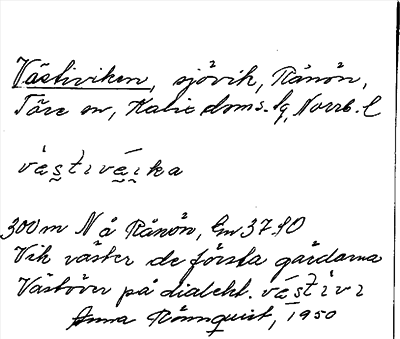 Västiviken, sjövik, Rånön,
Töre sn, Kalix doms.lg, Norrb. l
västiväika
300 m N å Rånön, Em 37.80
Vik väster de första gårdarna
Västöver på dialekt. västivi
Anna Rönnquist, 1950